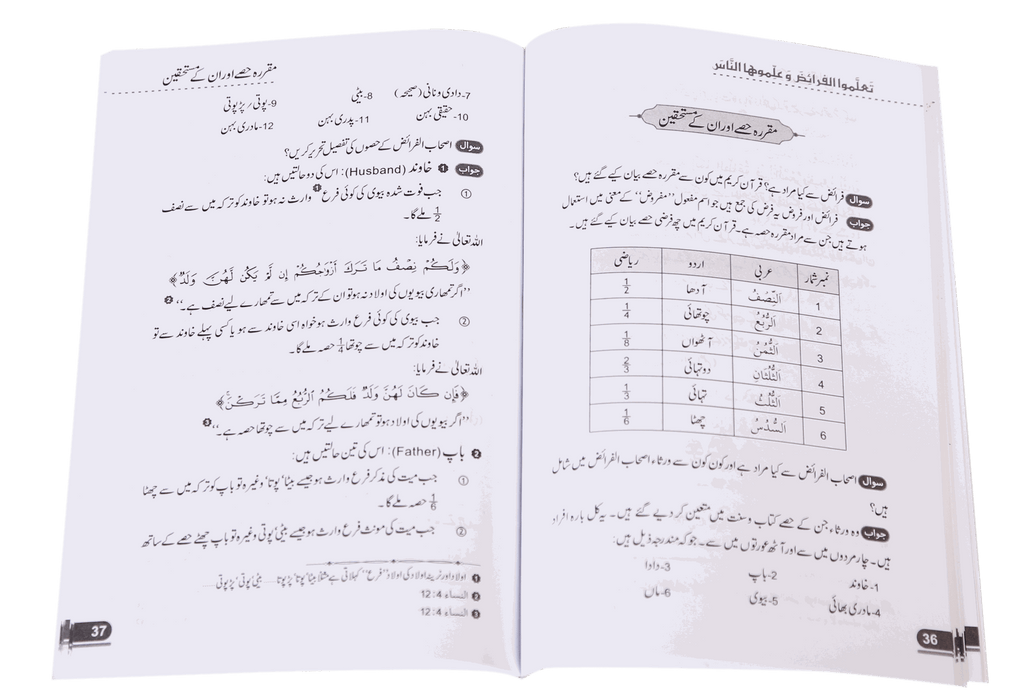 تَعَلَّموا الفَرائِضَ وَ عَلِّموها النَّاسَ
مقررہ حصے اور ان کے مستحقین
سوال فرائض سے کیا مراد ہے؟ قرآن کریم میں کون سے مقررہ حصے بیان کیے گئے ہیں؟
جواب فرائض اور فروض یہ فرض کی جمع ہیں جو اسم مفعول ’’مفروض‘‘ کے معنی میں استعمال
ہوتے ہیں جن سے مراد مقررہ حصہ ہے۔ قرآن کریم میں چھ فرضی حصے بیان کیے گئے ہیں۔
نمبر شمار عربی اردو ریاضی
1 اَلنِّصْفُ آدھا 1/2
2 اَلرُّبُعُ چوتھائی 1/4
3 اَلثُّمُنُ آٹھواں 1/8
4 اَلثُّلُثَانِ دو تہائی 2/3
5 اَلثُّلُثُ تہائی 1/3
6 اَلسُّدُسُ چھٹا 1/6
سوال اصحاب الفرائض سے کیا مراد ہے اور کون کون سے ورثاء اصحاب الفرائض میں شامل
ہیں؟
جواب وہ ورثاء جن کے حصے کتاب و سنت میں متعین کر دیے گئے ہیں۔ یہ کل بارہ افراد
ہیں۔ چار مردوں میں سے اور آٹھ عورتوں میں سے۔ جو کہ مندرجہ ذیل ہیں:
1- خاوند 2- باپ 3- دادا
4- مادری بھائی 5- بیوی 6- ماں
36
مقررہ حصے اور ان کے مستحقین
7- دادی و نانی (صحیحہ) 8- بیٹی 9- پوتی / پڑپوتی
10- حقیقی بہن 11- پدری بہن 12- مادری بہن
سوال اصحاب الفرائض کے حصوں کی تفصیل تحریر کریں؟
جواب ❶ خاوند (Husband): اس کی دو حالتیں ہیں:
① جب فوت شدہ بیوی کی کوئی فرع❶ وارث نہ ہو تو خاوند کو ترکہ میں سے نصف
1/2 ملے گا۔
اللہ تعالیٰ نے فرمایا:
﴿وَلَكُمْ نِصْفُ مَا تَرَكَ أَزْوَاجُكُمْ إِن لَّمْ يَكُن لَّهُنَّ وَلَدٌ﴾
’’اگر تمھاری بیویوں کی اولاد نہ ہو تو ان کے ترکہ میں سے تمھارے لیے نصف ہے۔‘‘❷
② جب بیوی کی کوئی فرع وارث ہو خواہ اسی خاوند سے ہو یا کسی پہلے خاوند سے تو
خاوند کو ترکہ میں سے چوتھا 1/4 حصہ ملے گا۔
اللہ تعالیٰ نے فرمایا:
﴿فَإِن كَانَ لَهُنَّ وَلَدٌ فَلَكُمُ الرُّبُعُ مِمَّا تَرَكْنَ﴾
’’اگر بیویوں کی اولاد ہو تو تمھارے لیے ترکہ میں سے چوتھا حصہ ہے۔‘‘❸
❷ باپ (Father): اس کی تین حالتیں ہیں:
① جب میت کی مذکر فرع وارث ہو جیسے بیٹا‘ پوتا‘ وغیرہ تو باپ کو ترکہ میں سے چھٹا
1/6 حصہ ملے گا۔
② جب میت کی مونث فرع وارث ہو جیسے بیٹی‘ پوتی وغیرہ تو باپ چھٹے حصے کے ساتھ
❶ اولاد اور نرینہ اولاد کی اولاد ’’فرع‘‘ کہلاتی ہے مثلاً بیٹا‘ پوتا‘ پڑپوتا ...... بیٹی‘ پوتی‘ پڑپوتی
❷ النساء 4: 12
❸ النساء 4: 12
37